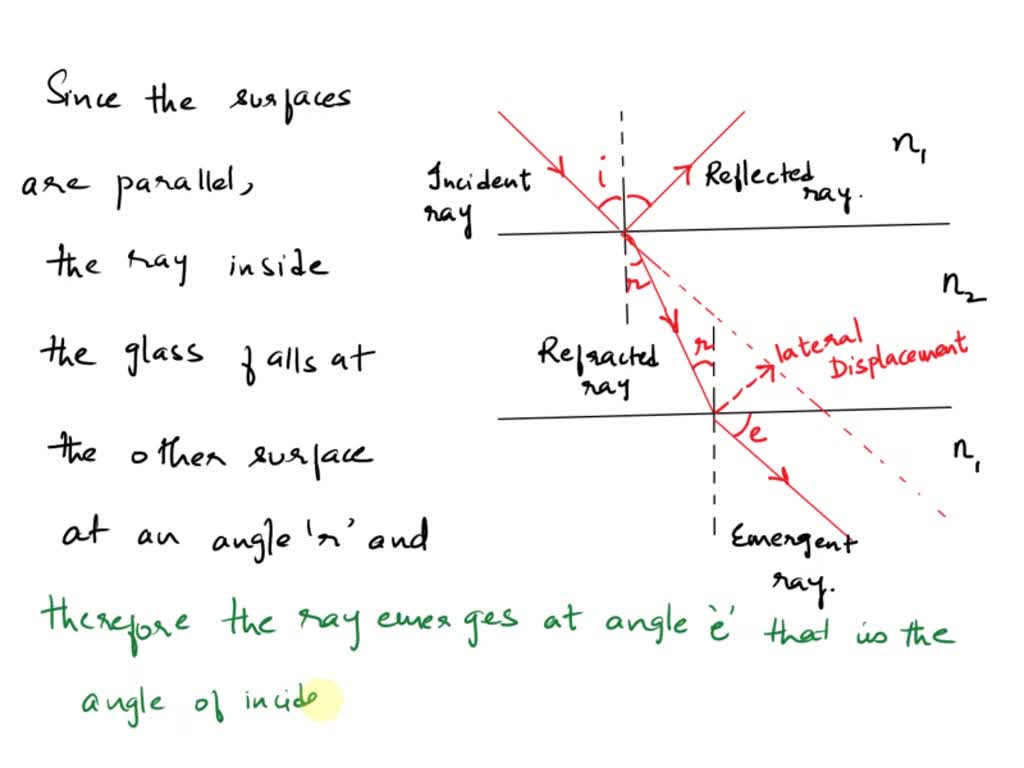 Since the surfaces
are parallel,
the ray inside
the glass falls at
the other surface
at an angle 'r' and
therefore the ray emerges at angle 'e' that is the
angle of incide
Incident
ray
i
Reflected
ray.
n1
r
n2
Refracted
ray
r
lateral
Displacement
e
n1
Emergent
ray.